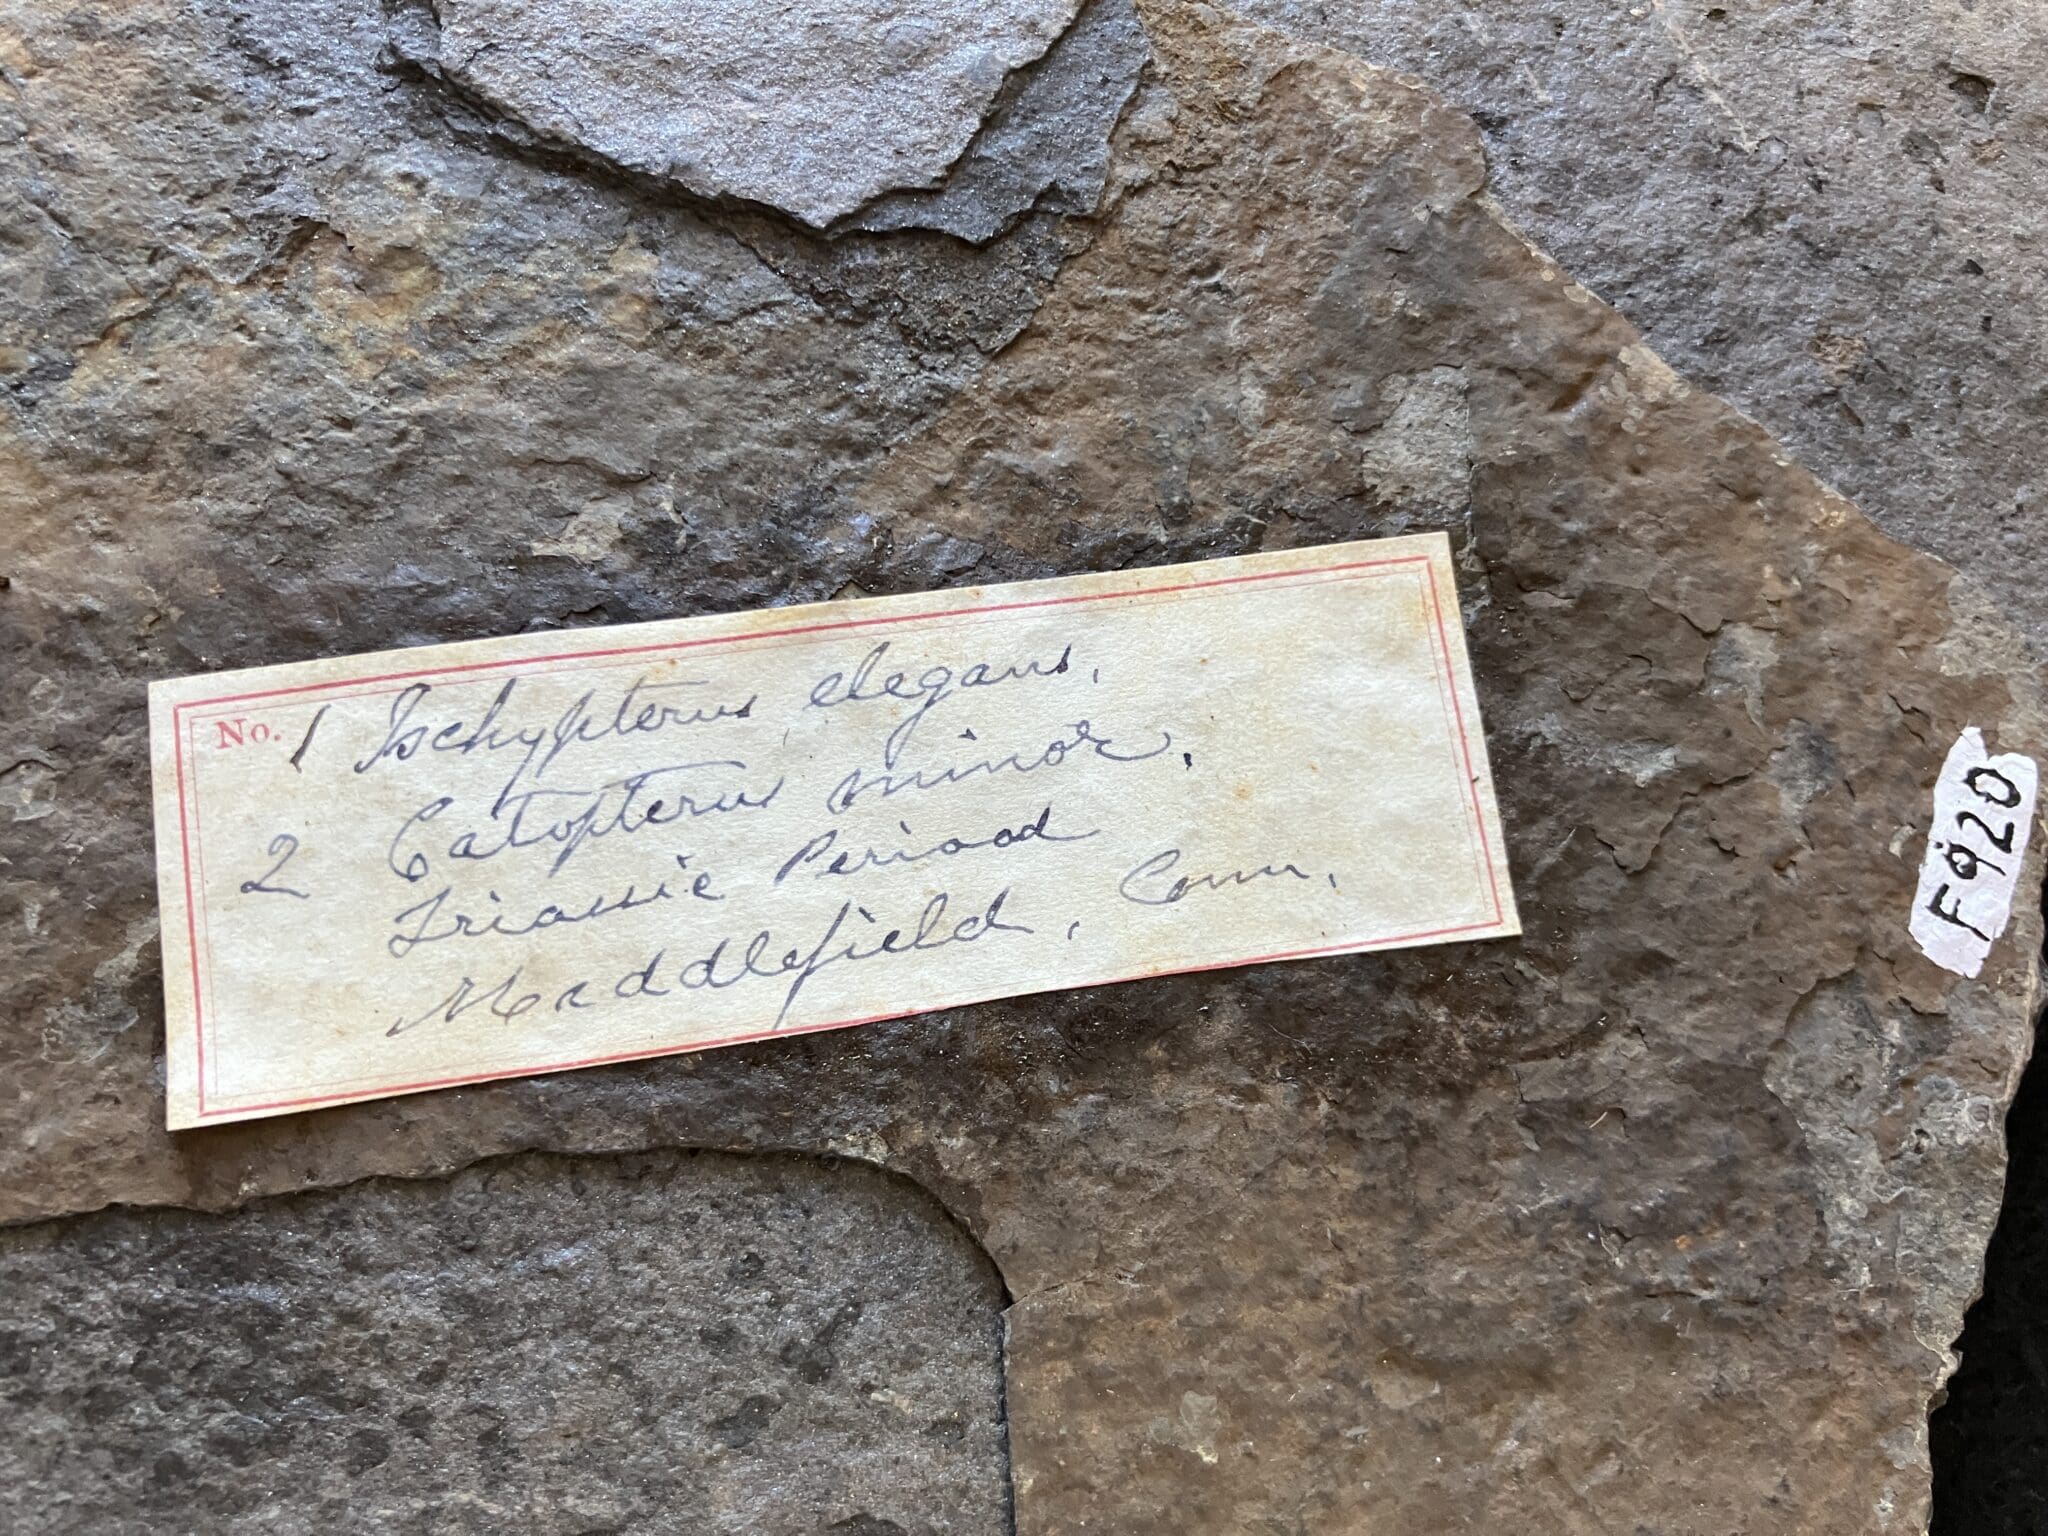 No. 1 Ischypterus elegans.
2 Catopterus minor.
Triassic Period
Middlefield, Conn.
F920